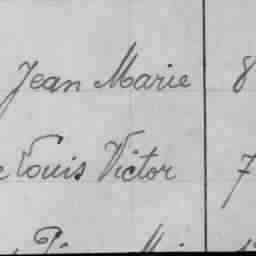 Jean Marie 8
Louis Victor 7